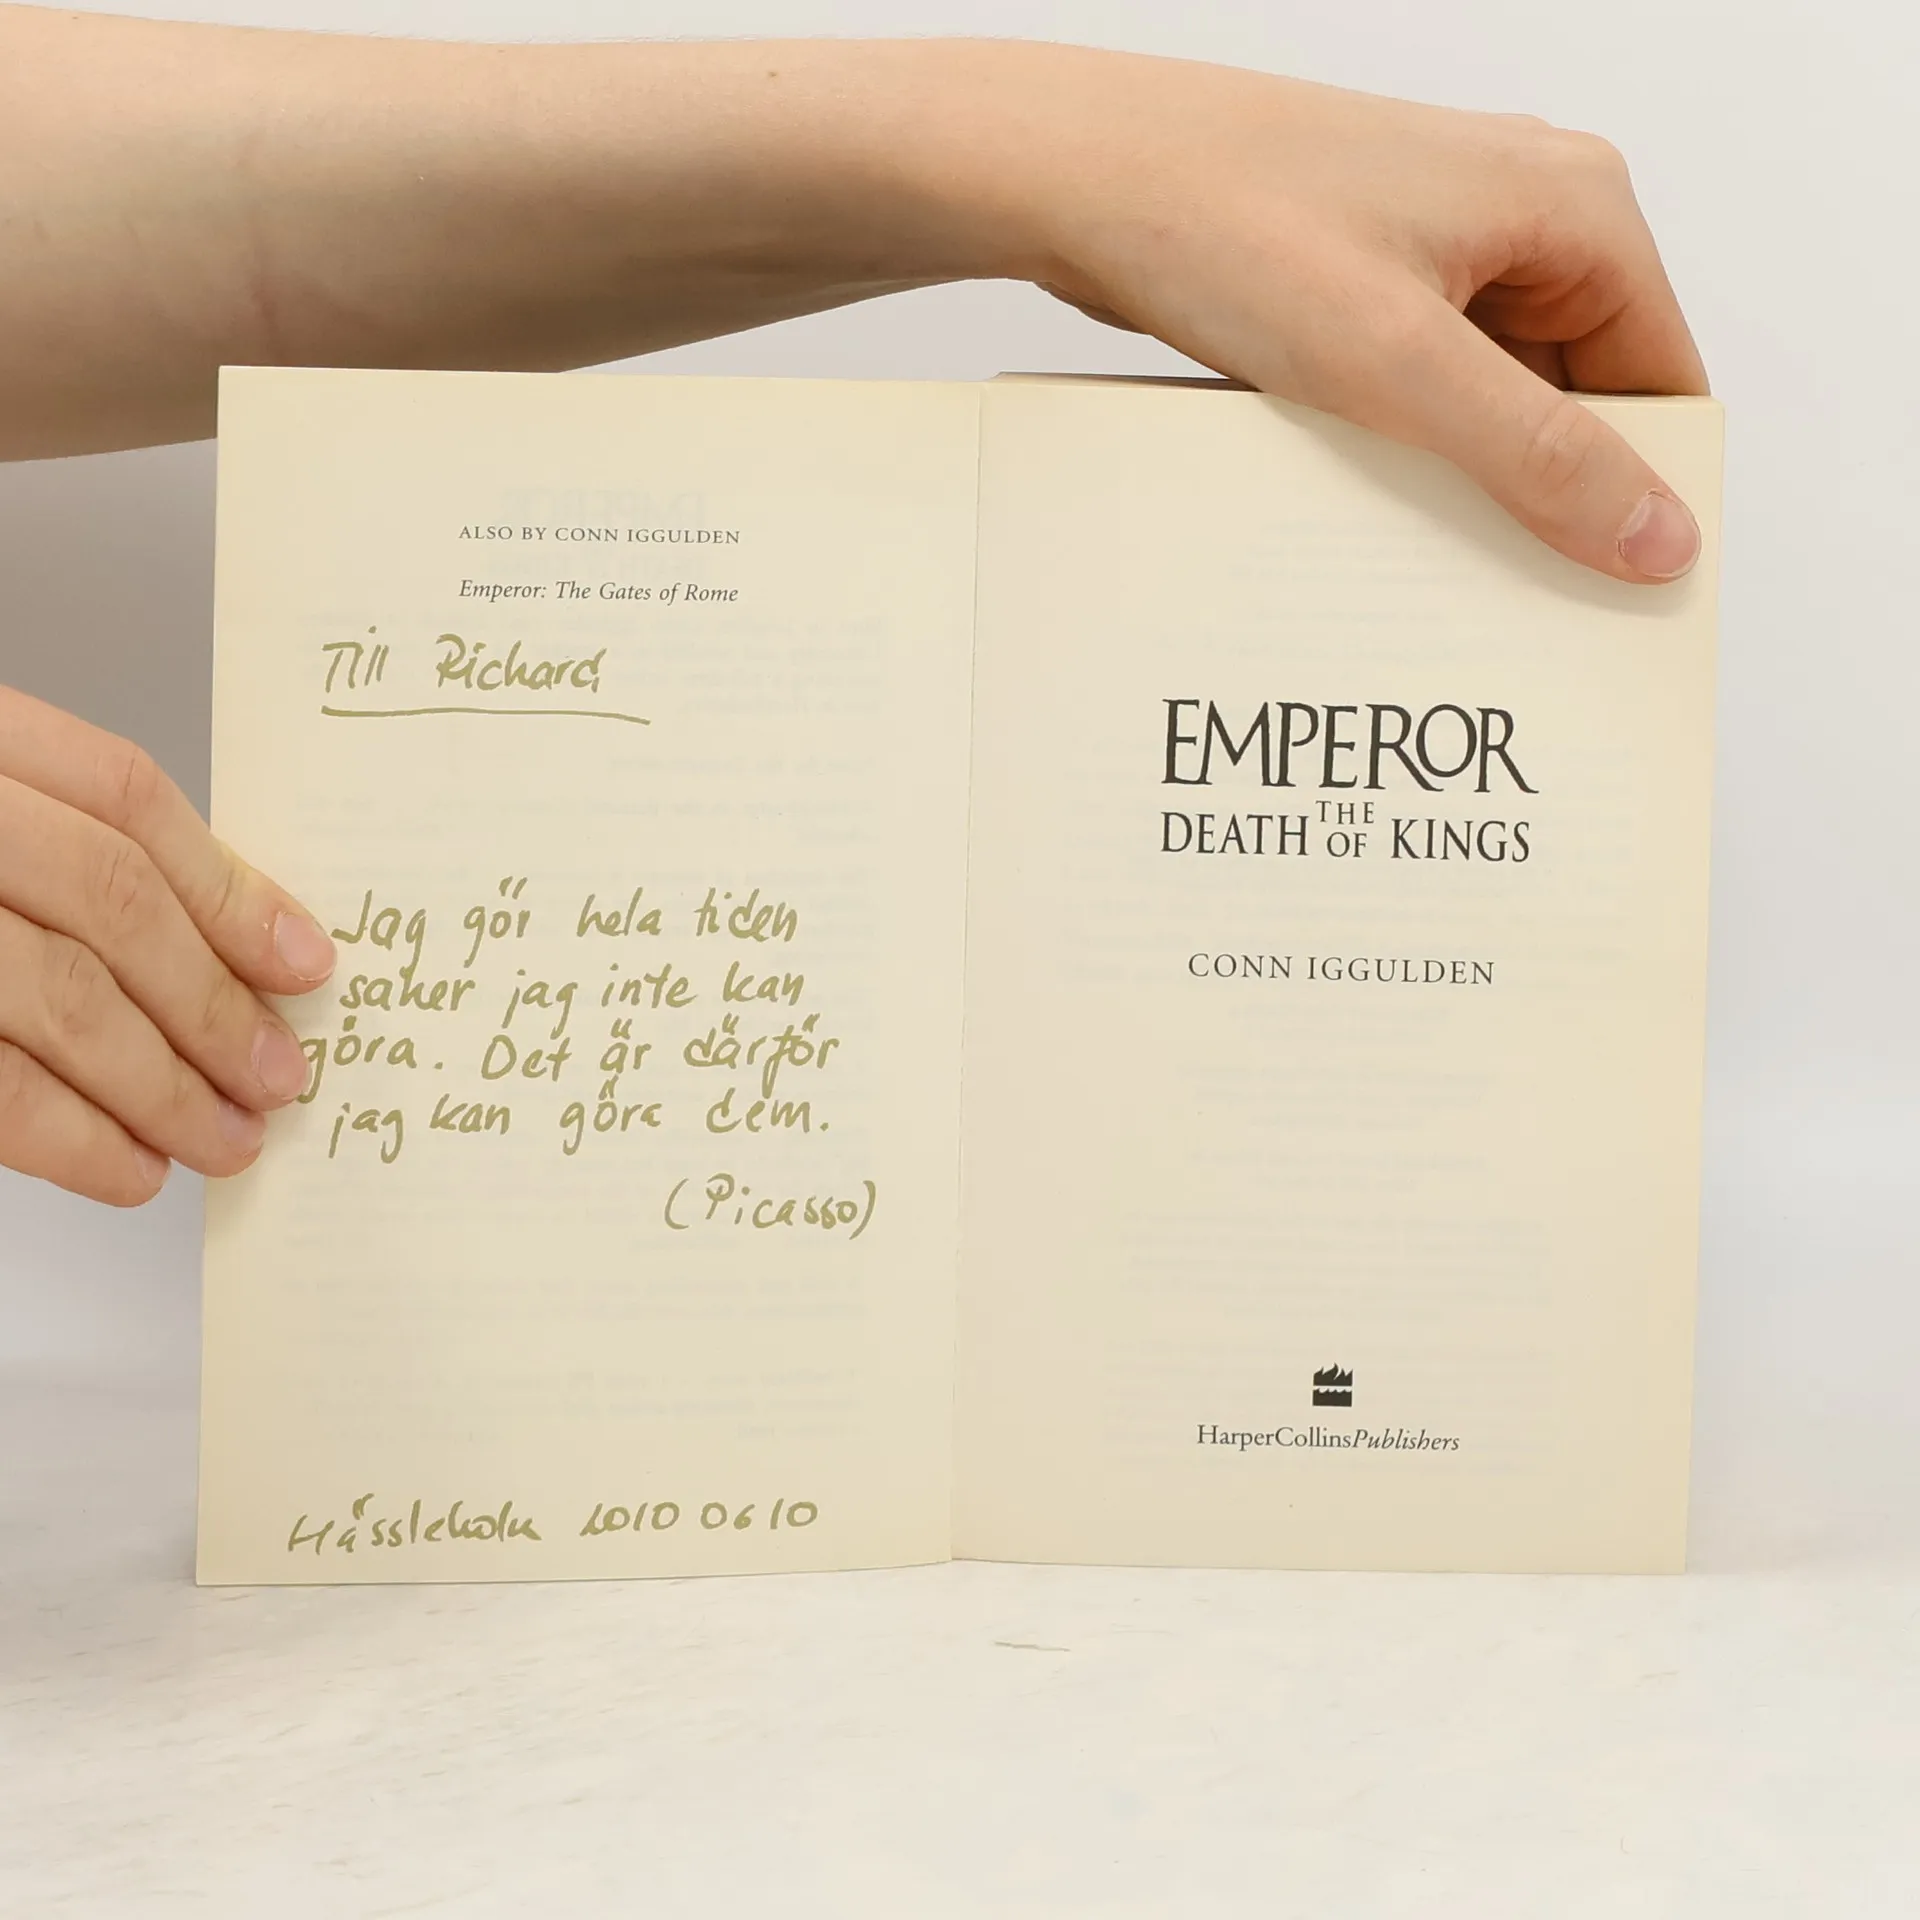 ALSO BY CONN IGGULDEN
Emperor: The Gates of Rome
Till Richard
Jag gör hela tiden
saker jag inte kan
göra. Det är därför
jag kan göra dem.
(Picasso)
Hässleholm 2010 06 10
EMPEROR
THE
DEATH OF KINGS
CONN IGGULDEN
HarperCollinsPublishers